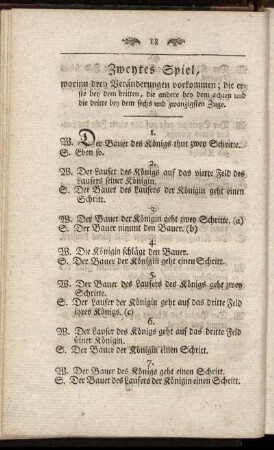 18
Zweytes Spiel,
worinn drey Veränderungen vorkommen; die er-
ste bey dem dritten, die andere bey dem achten und
die dritte bey dem sechs und zwanzigsten Zuge.
1.
W. Der Bauer des Königs thut zwey Schritte.
S. Eben so.
2.
W. Der Laufer des Königs auf das vierte Feld des
Laufers seiner Königin.
S. Der Bauer des Laufers der Königin geht einen
Schritt.
3.
W. Der Bauer der Königin geht zwey Schritte. (a)
S. Der Bauer nimmt den Bauer. (b)
4.
W. Die Königin schlägt den Bauer.
S. Der Bauer der Königin geht einen Schritt.
5.
W. Der Bauer des Laufers des Königs geht zwey
Schritte.
S. Der Laufer der Königin geht auf das dritte Feld
ihres Königs. (c)
6.
W. Der Laufer des Königs geht auf das dritte Feld
seiner Königin.
S. Der Bauer der Königin einen Schritt.
7.
W. Der Bauer des Königs geht einen Schritt.
S. Der Bauer des Laufers der Königin einen Schritt.